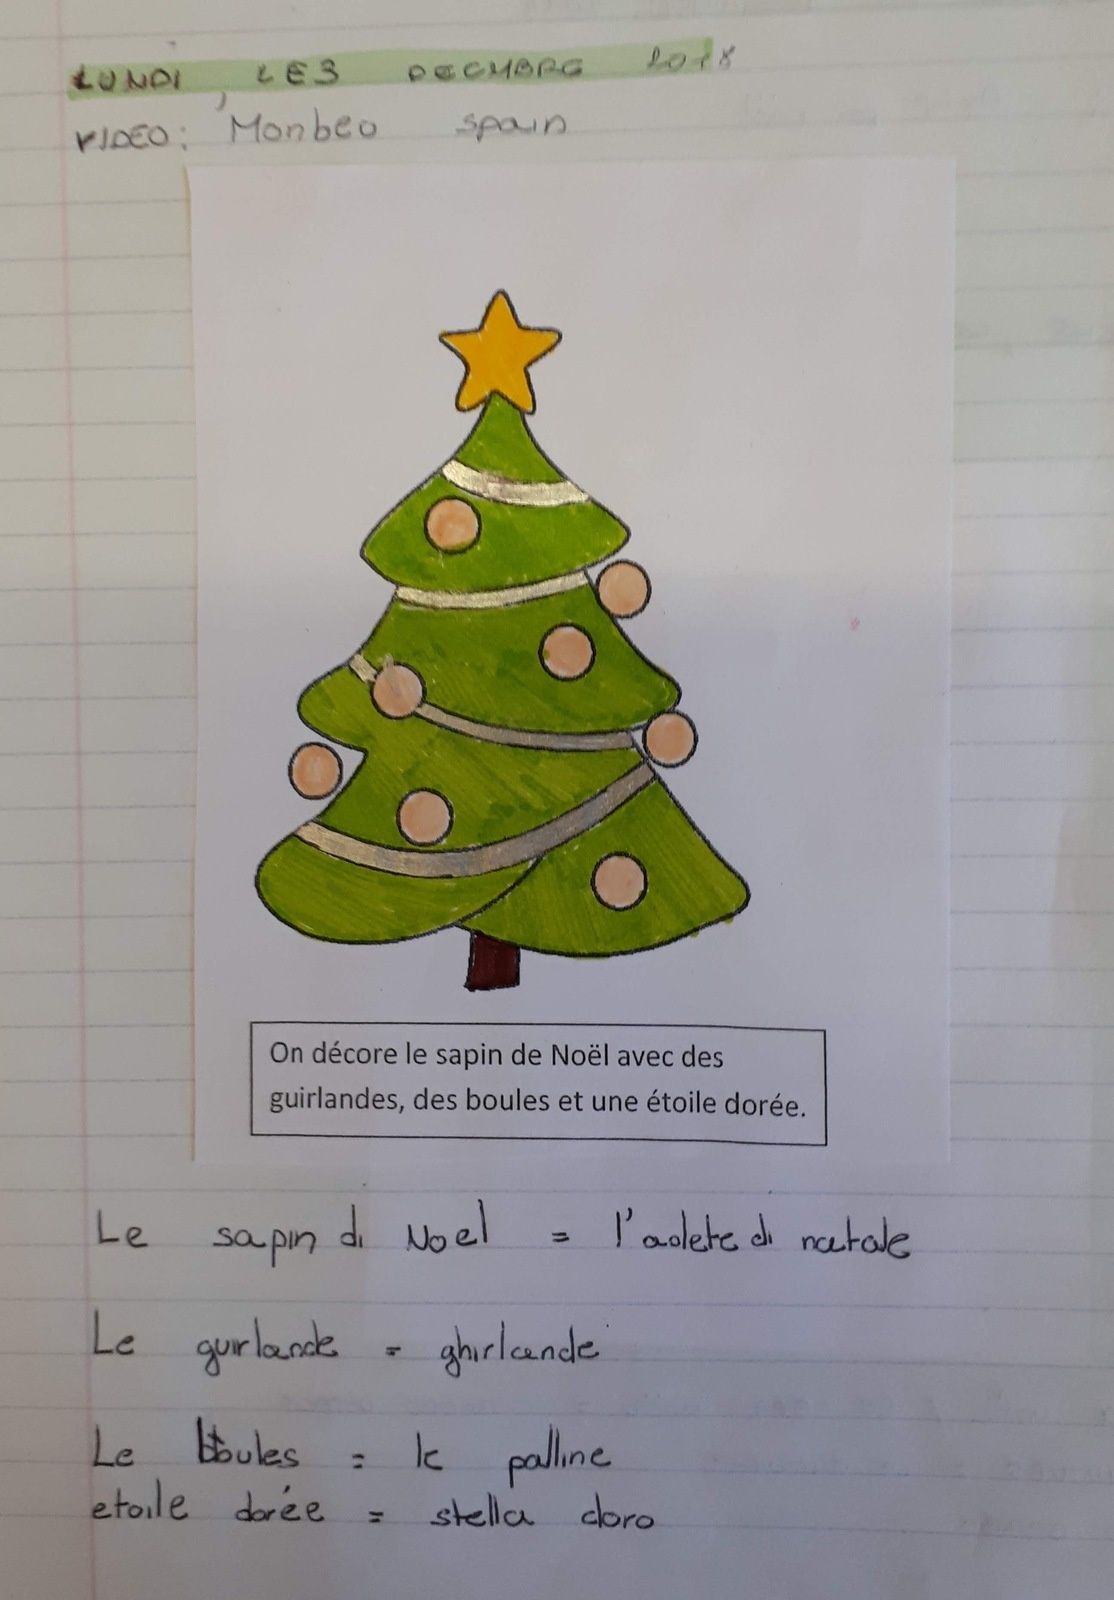 LUNDI, LE 3 DECMBRE 2018
VIDEO: Monbeo spain
On décore le sapin de Noël avec des
guirlandes, des boules et une étoile dorée.
Le sapin di Noel = l'aolete di natale
Le guirlande = ghirlande
Le boules = le palline
etoile dorée = stella doro